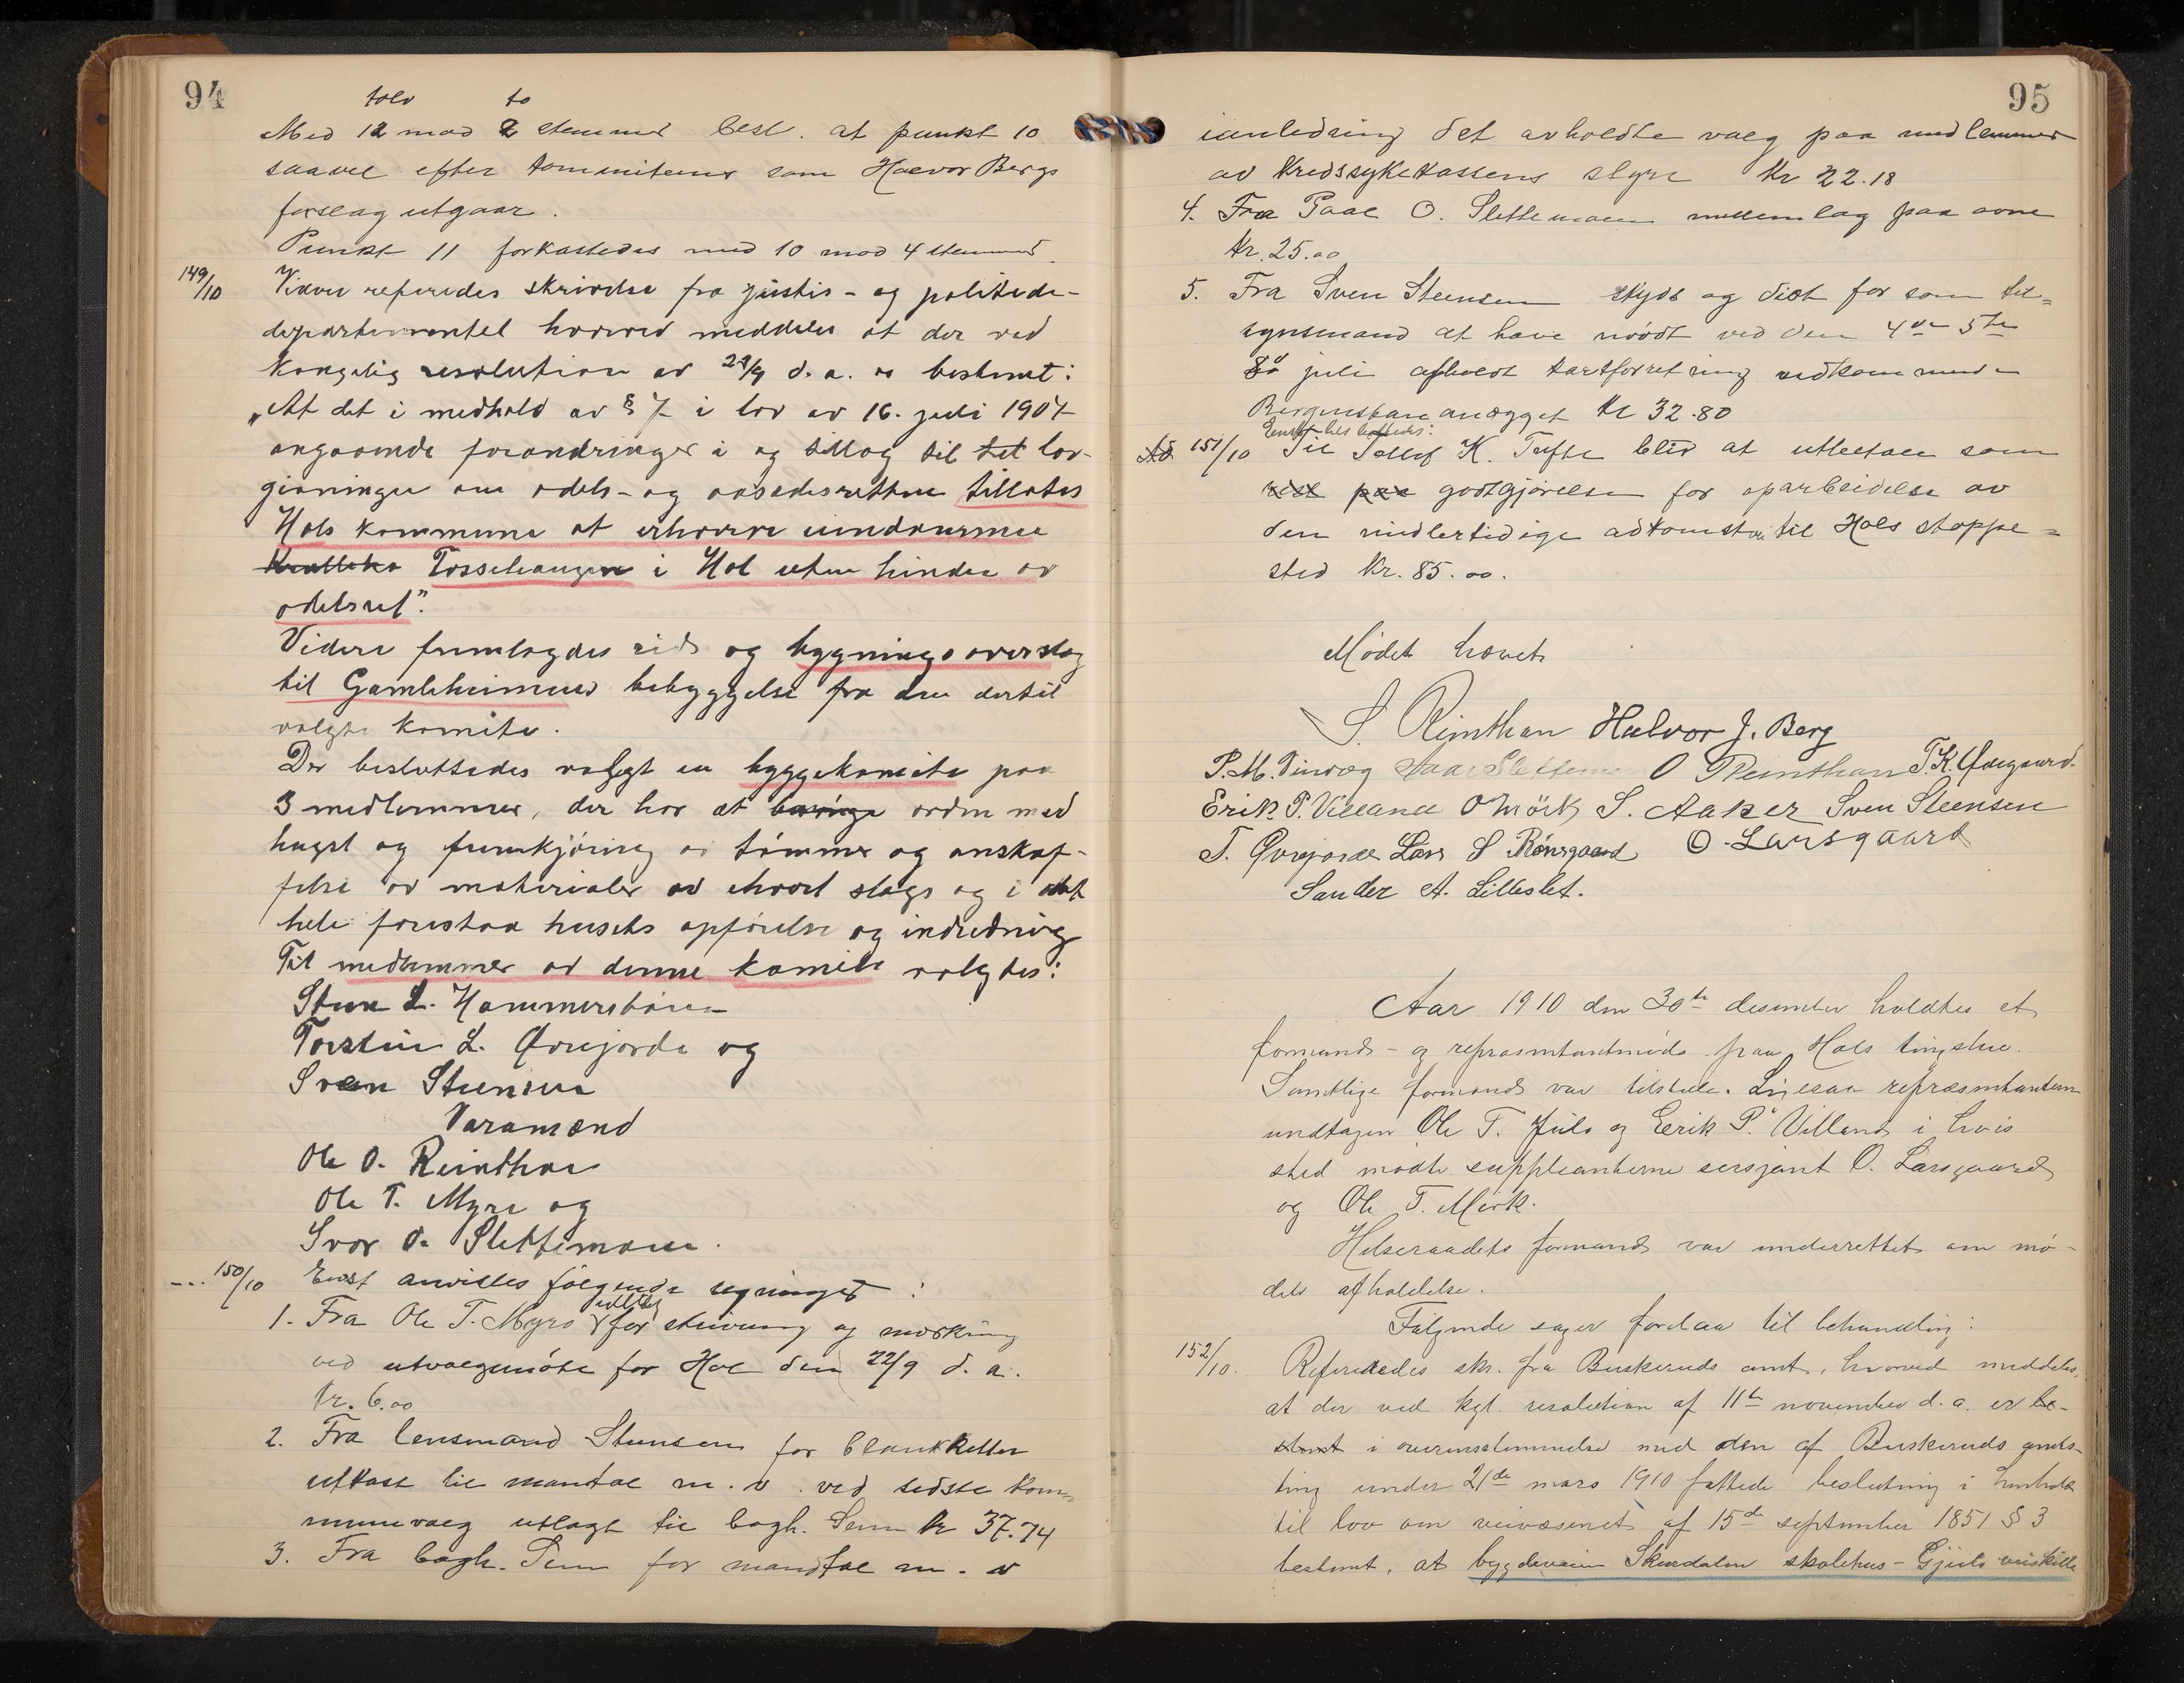 94
tolv to
Med 12 mod 2 stemmer besl. at punkt 10
saavel efter kommiteens som Halvor Bergs
forslag utgaar.
Punkt 11 forkastedes med 10 mod 4 stemmer.
149/10 Videre referedes skrivelse fra justis- og politide-
departementet hvorved meddeles at der ved
kongelig resolution av d. a. er bestemt:
„At det i medhold av § 7 i lov av 16. juli 1907
angaaende forandringer i og tillæg til lov-
givningen om odels- og aasædesretten tillates
Hols kommune at erhverve eiendommen
Tossehaugen i Hol uten hinder av
odelsret".
Videre fremlagdes rids og bygningsoverslag
til Gamleheimens bebyggelse fra den dertil
valgte komite.
Der besluttedes valgt en byggekomite paa
3 medlemmer, der har at ordne med
hugst og fremkjøring av tømmer og anskaf-
felse av materialer av ethvert slags og i det
hele forestaa husets opførelse og indredning
Til medlemmer av denne komite valgtes:
Sten L. Hammersbøen
Torstein L. Øvrejorde og
Sven Steensen
Varamænd
Ole O. Reinthon
Ole T. Myro og
Ivar O. Slettemoen.
150/10 Enst anvistes følgende regninger:
1. Fra Ole T. Myro utlæg for skrivning og
ved utvalgsmøte for Hol den 22/9 d. a.
kr. 6.00
2. Fra lensmand Steensen for blanketter
utkast til mandtal m. v. ved sidste kom-
munevalg utlagt til bogh. Senn kr 37.74
3. Fra bogh. Senn for mandtal m. v
95
ianledning det avholdte valg paa medlemmer
av kredssykekassens styre kr 22.18
4. Fra Paal O. Slettemoen mellemlag paa
kr. 25.00
5. Fra Sven Steensen skyds og diæt for som til=
synsmand at have møødt ved den 4de 5te
juli afholdt takstforretning vedkommende
Bergensbaneanlægget kr 32.80
Enst. besluttedes:
Ad 151/10 Til Tollef K. Tufte blir at utbetale som
godtgjørelse for oparbeidelse av
den midlertidige adkomstvei til Hols stoppe=
sted kr. 85.00.
Mødet hævet
S. Rinthan Halvor J. Berg
O Reinthan T.K. Ødegaard.
Erik P. Villand O Mörk S. Aaker Sven Steensen
T. Øvrejorde Lars S Rønsgaard O. Larsgaard
Sander A. Lilleslet.
Aar 1910 den 30te desember holdtes et
formands- og repræsentantmøde paa Hols tingstue.
Samtlige formænd var tilstede. Ligesaa repræsentanterne
undtagen Ole T. Juls og Erik P. Villand i hvis
sted mødte suppleanterne sersjant O. Larsgaard
og Ole T. Mørk.
Helseraadets formand var underrettet om mø-
dets afholdelse.
Følgende sager forelaa til behandling:
152/10. Refereredes skr. fra Buskeruds amt, hvorved meddeles,
at der ved kgl. resolution af 11te november d. a. er be-
stemt i overensstemmelse med den af Buskeruds amts-
ting under 21de mars 1910 fattede beslutning i henhold
til lov om veivæsenet af 15de september 1851 § 3
bestemt, at bygdeveien Skurdalen skolehus - Gjeilo veiskille